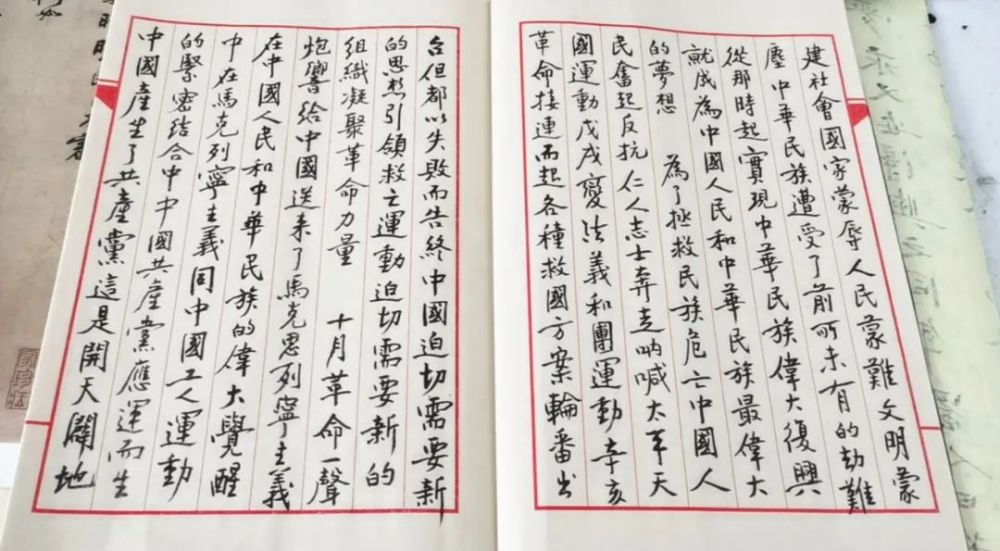 建社會國家蒙辱人民蒙難文明蒙
塵中華民族遭受了前所未有的劫難
從那時起實現中華民族偉大復興
就成為中國人民和中華民族最偉大
的夢想 為了拯救民族危亡中國人
民奮起反抗仁人志士奔走吶喊太平天
國運動戊戌變法義和團運動辛亥
革命接連而起各種救國方案輪番出
台但都以失敗而告終中國迫切需要新
的思想引領救亡運動迫切需要新的
組織凝聚革命力量 十月革命一聲
炮響給中國送來了馬克思列寧主義
在中國人民和中華民族的偉大覺醒
中在馬克列寧主義同中國工人運動
的緊密結合中中國共產黨應運而生
中國產生了共產黨這是開天闢地